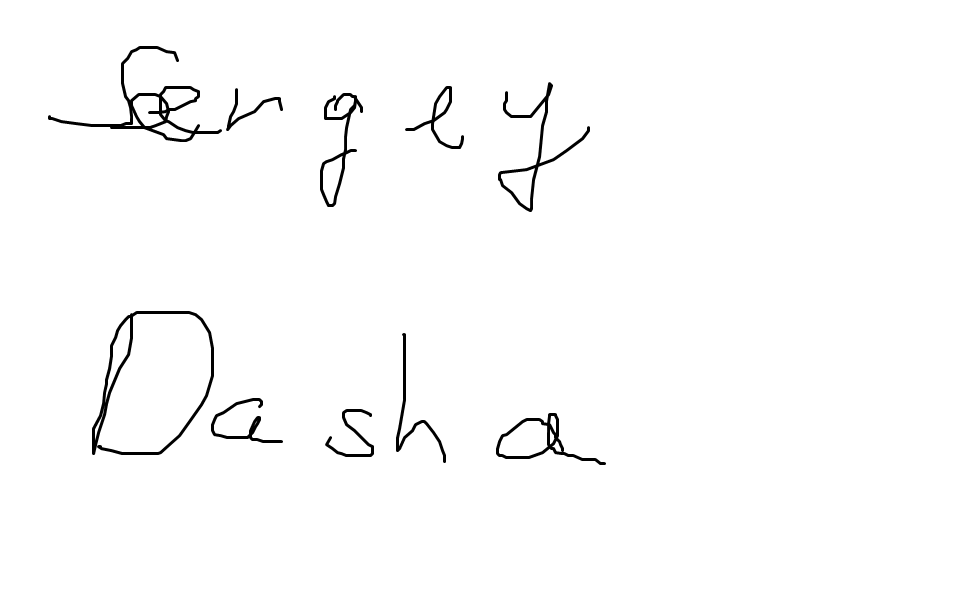 Sergey
Dasha